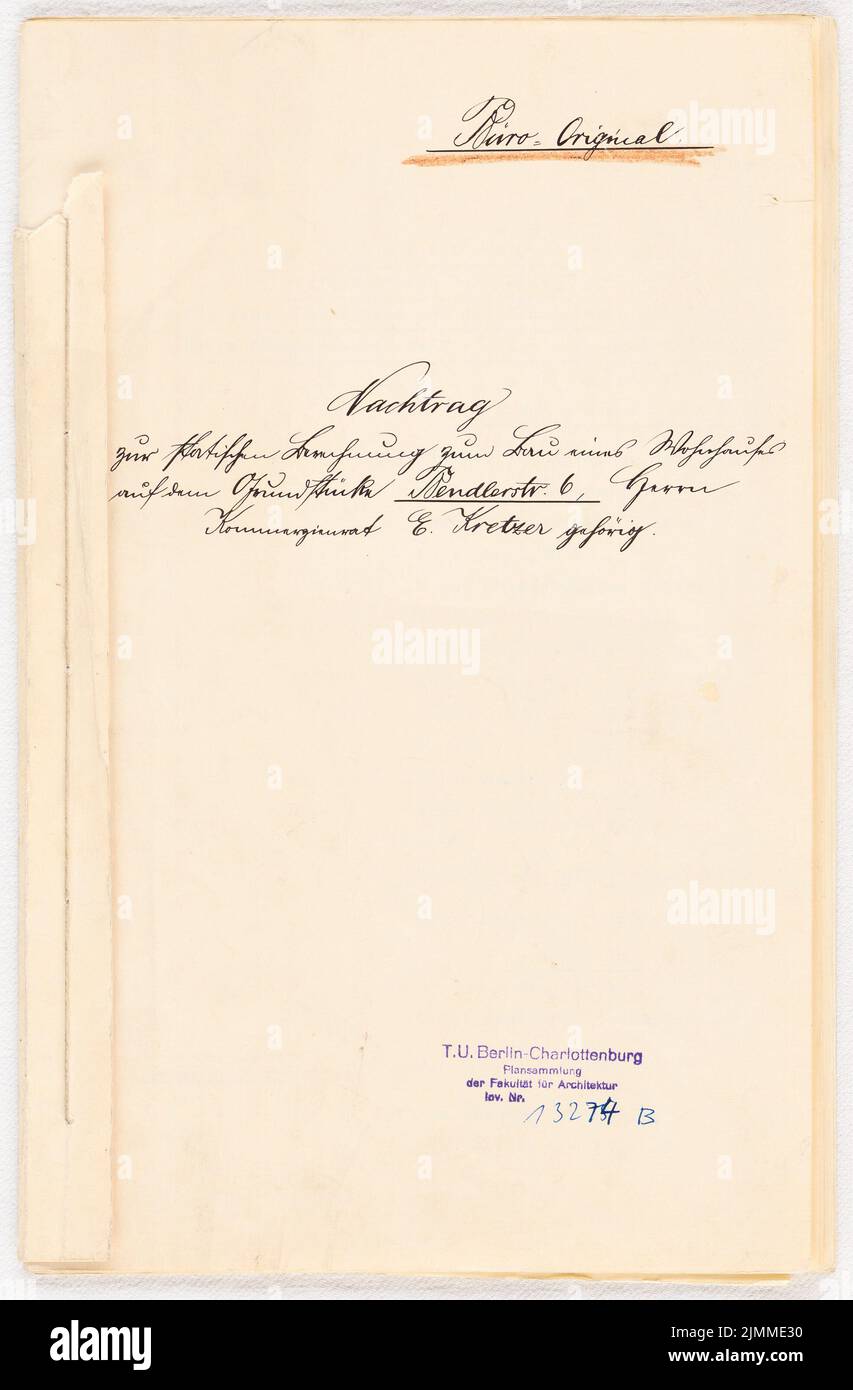 Büro-Original.
Nachtrag
zur statischen Berechnung zum Bau eines Wohnhauses
auf dem Grundstücke Bendlerstr. 6, Herrn
Kommerzienrat E. Kretzer gehörig.
T.U. Berlin-Charlottenburg
Plansammlung
der Fakultät für Architektur
Inv. Nr.
13274 B
alamy
Image ID: 2JMME30
www.alamy.com